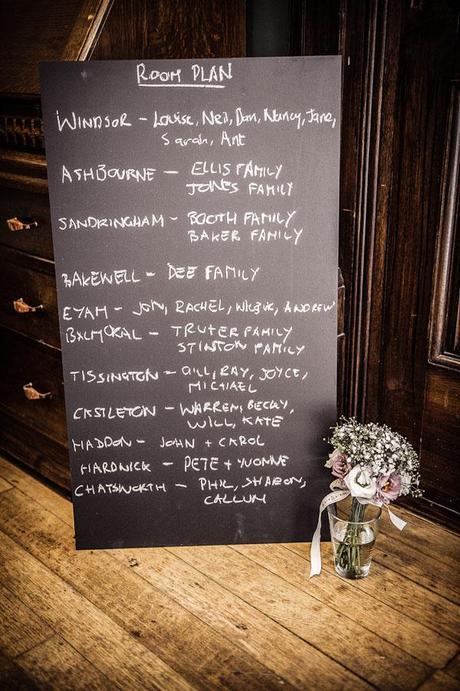 ROOM PLAN
WINDSOR - Louise, Neil, Dan, Nancy, Jane,
Sarah, Ant
ASHBOURNE - ELLIS FAMILY
JONES FAMILY
SANDRINGHAM - BOOTH FAMILY
BAKER FAMILY
BAKEWELL - DEE FAMILY
EYAM - JON, RACHEL, ANDREW
BALMORAL - TRUTER FAMILY
STINTON FAMILY
TISSINGTON - GILL, RAY, JOYCE,
MICHAEL
CASTLETON - WARREN, BECKY,
WILL, KATE
HADDON - JOHN + CAROL
HARDWICK - PETE + YVONNE
CHATSWORTH - PHIL, SHARON,
CALLUM